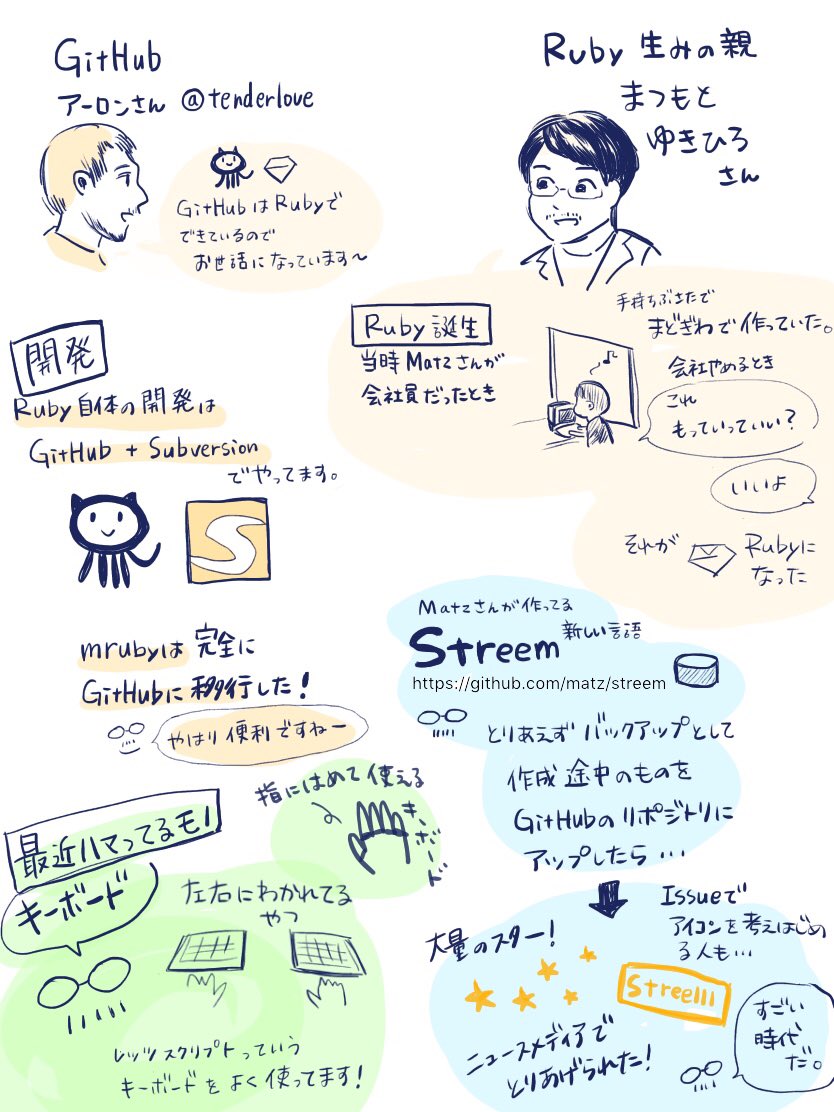 GitHub
アーロンさん @tenderlove
GitHubはRubyで
できているので
お世話になっています〜
Ruby 生みの親
まつもと
ゆきひろ
さん
Ruby 誕生
当時 Matzさんが
会社員だったとき
手持ちぶさたで
まどぎわで 作っていた。
会社やめるとき
これ
もっていっていい?
いいよ
それが
Rubyに
なった
開発
Ruby自体の開発は
GitHub + Subversion
でやってます。
S
mrubyは 完全に
GitHubに移行した!
やはり便利ですねー
Matzさんが作ってる
新しい言語
Streem
https://github.com/matz/streem
とりあえず バックアップとして
作成途中のものを
GitHubのリポジトリに
アップしたら…
大量のスター!
Issueで
アイコンを考えはじめ
る人も…
Streem
ニュースメディアで
とりあげられた!
すごい
時代
だ。
最近ハマってるモノ
キーボード
指にはめて使える
キーボード
左右にわかれてる
やつ
レッツスクリプトっていう
キーボードをよく使ってます!